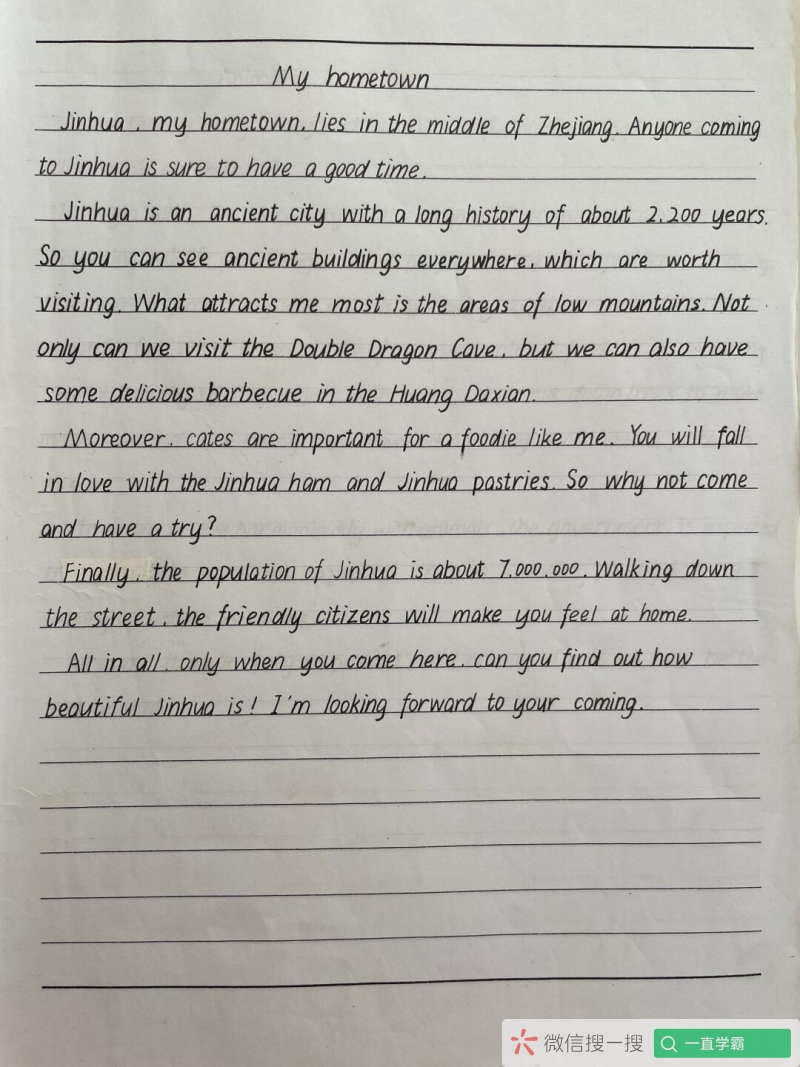 My hometown
Jinhua, my hometown, lies in the middle of Zhejiang. Anyone coming
to Jinhua is sure to have a good time.
Jinhua is an ancient city with a long history of about 2,200 years.
So you can see ancient buildings everywhere, which are worth
visiting. What attracts me most is the areas of low mountains. Not
only can we visit the Double Dragon Cave, but we can also have
some delicious barbecue in the Huang Daxian.
Moreover, cates are important for a foodie like me. You will fall
in love with the Jinhua ham and Jinhua pastries. So why not come
and have a try?
Finally, the population of Jinhua is about 7,000,000. Walking down
the street, the friendly citizens will make you feel at home.
All in all, only when you come here, can you find out how
beautiful Jinhua is! I'm looking forward to your coming.
微信搜一搜
一直学霸